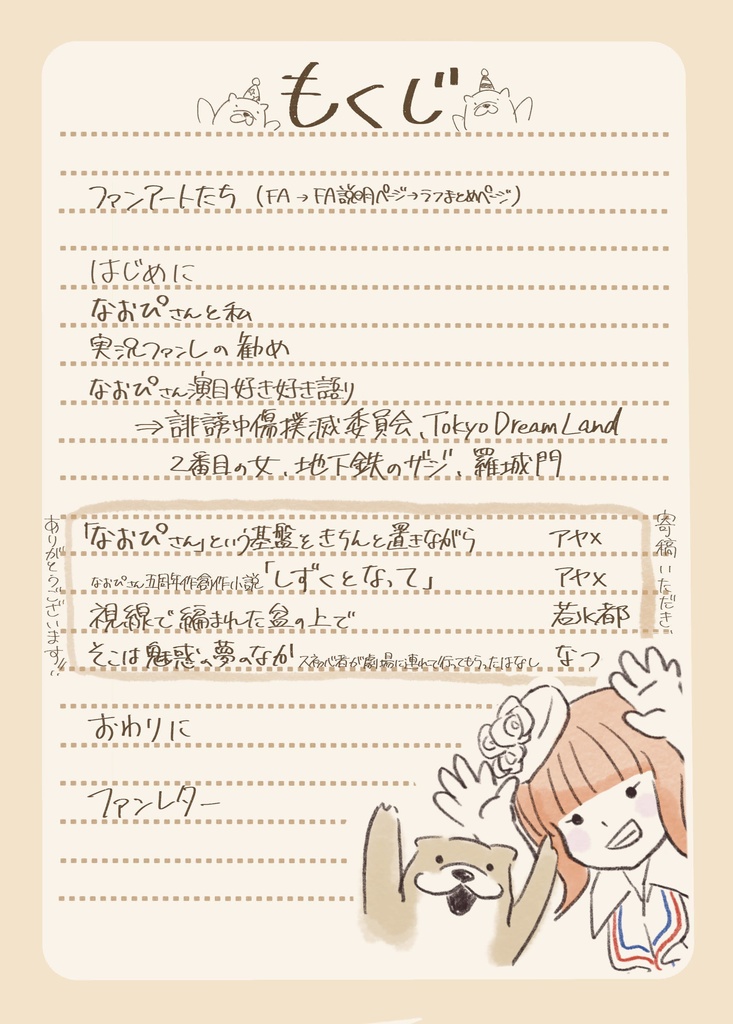 もくじ
ファンアートたち (FA→FA説明ページ→ラフまとめページ)
はじめに
なおぴさんと私
実況ファンレの勧め
なおぴさん演目好き好き語り
⇒誹謗中傷撲滅委員会、Tokyo Dream Land
2番目の女、地下鉄のザジ、羅城門
「なおぴさん」という基盤をきちんと置きながら アヤメ
なおぴさん五周年作創作小説「しずくとなって」 アヤメ
視線で編まれた盆の上で 若水都
そこは魅惑の夢のなか スネッパ君が劇場に連れて行ってもらったはなし なつ
寄稿いただき、
ありがとうございます!!
おわりに
ファンレター